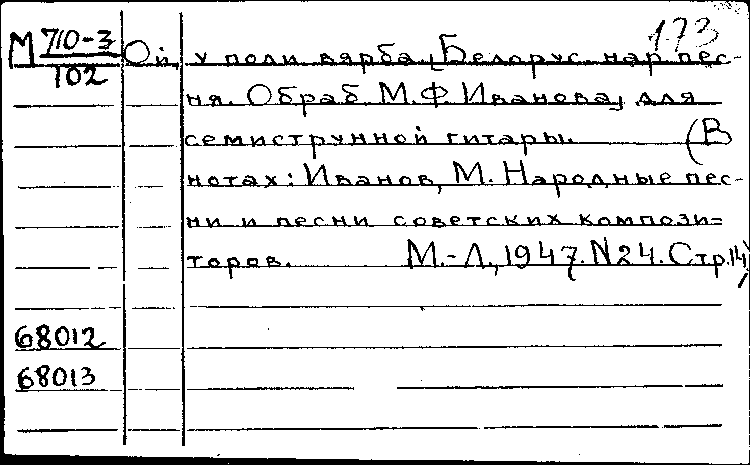 173
М 710-3
102
Ой, у поли вярба [Белорус. нар. пес-
ня. Обраб. М.Ф. Иванова, для
семиструнной гитары. (В
нотах: Иванов, М. Народные пес-
ни и песни советских компози=
торов. М.-Л., 1947. N24. Стр. 14)
68012
68013